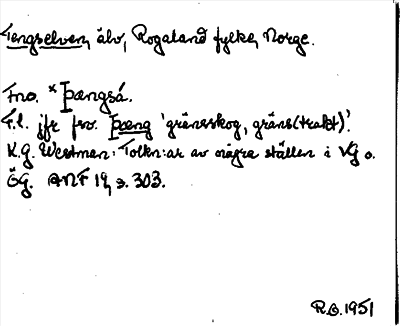 Tengselven, älv, Rogaland fylke, Norge.
Fno. *Þængsá.
F.l. jfr fno. þæng 'gränsskog, gräns(trakt)'.
K.G. Westman: Tolkn:ar av några ställen i VG o.
ÖG. ANF 19, s. 303.
R.O. 1951